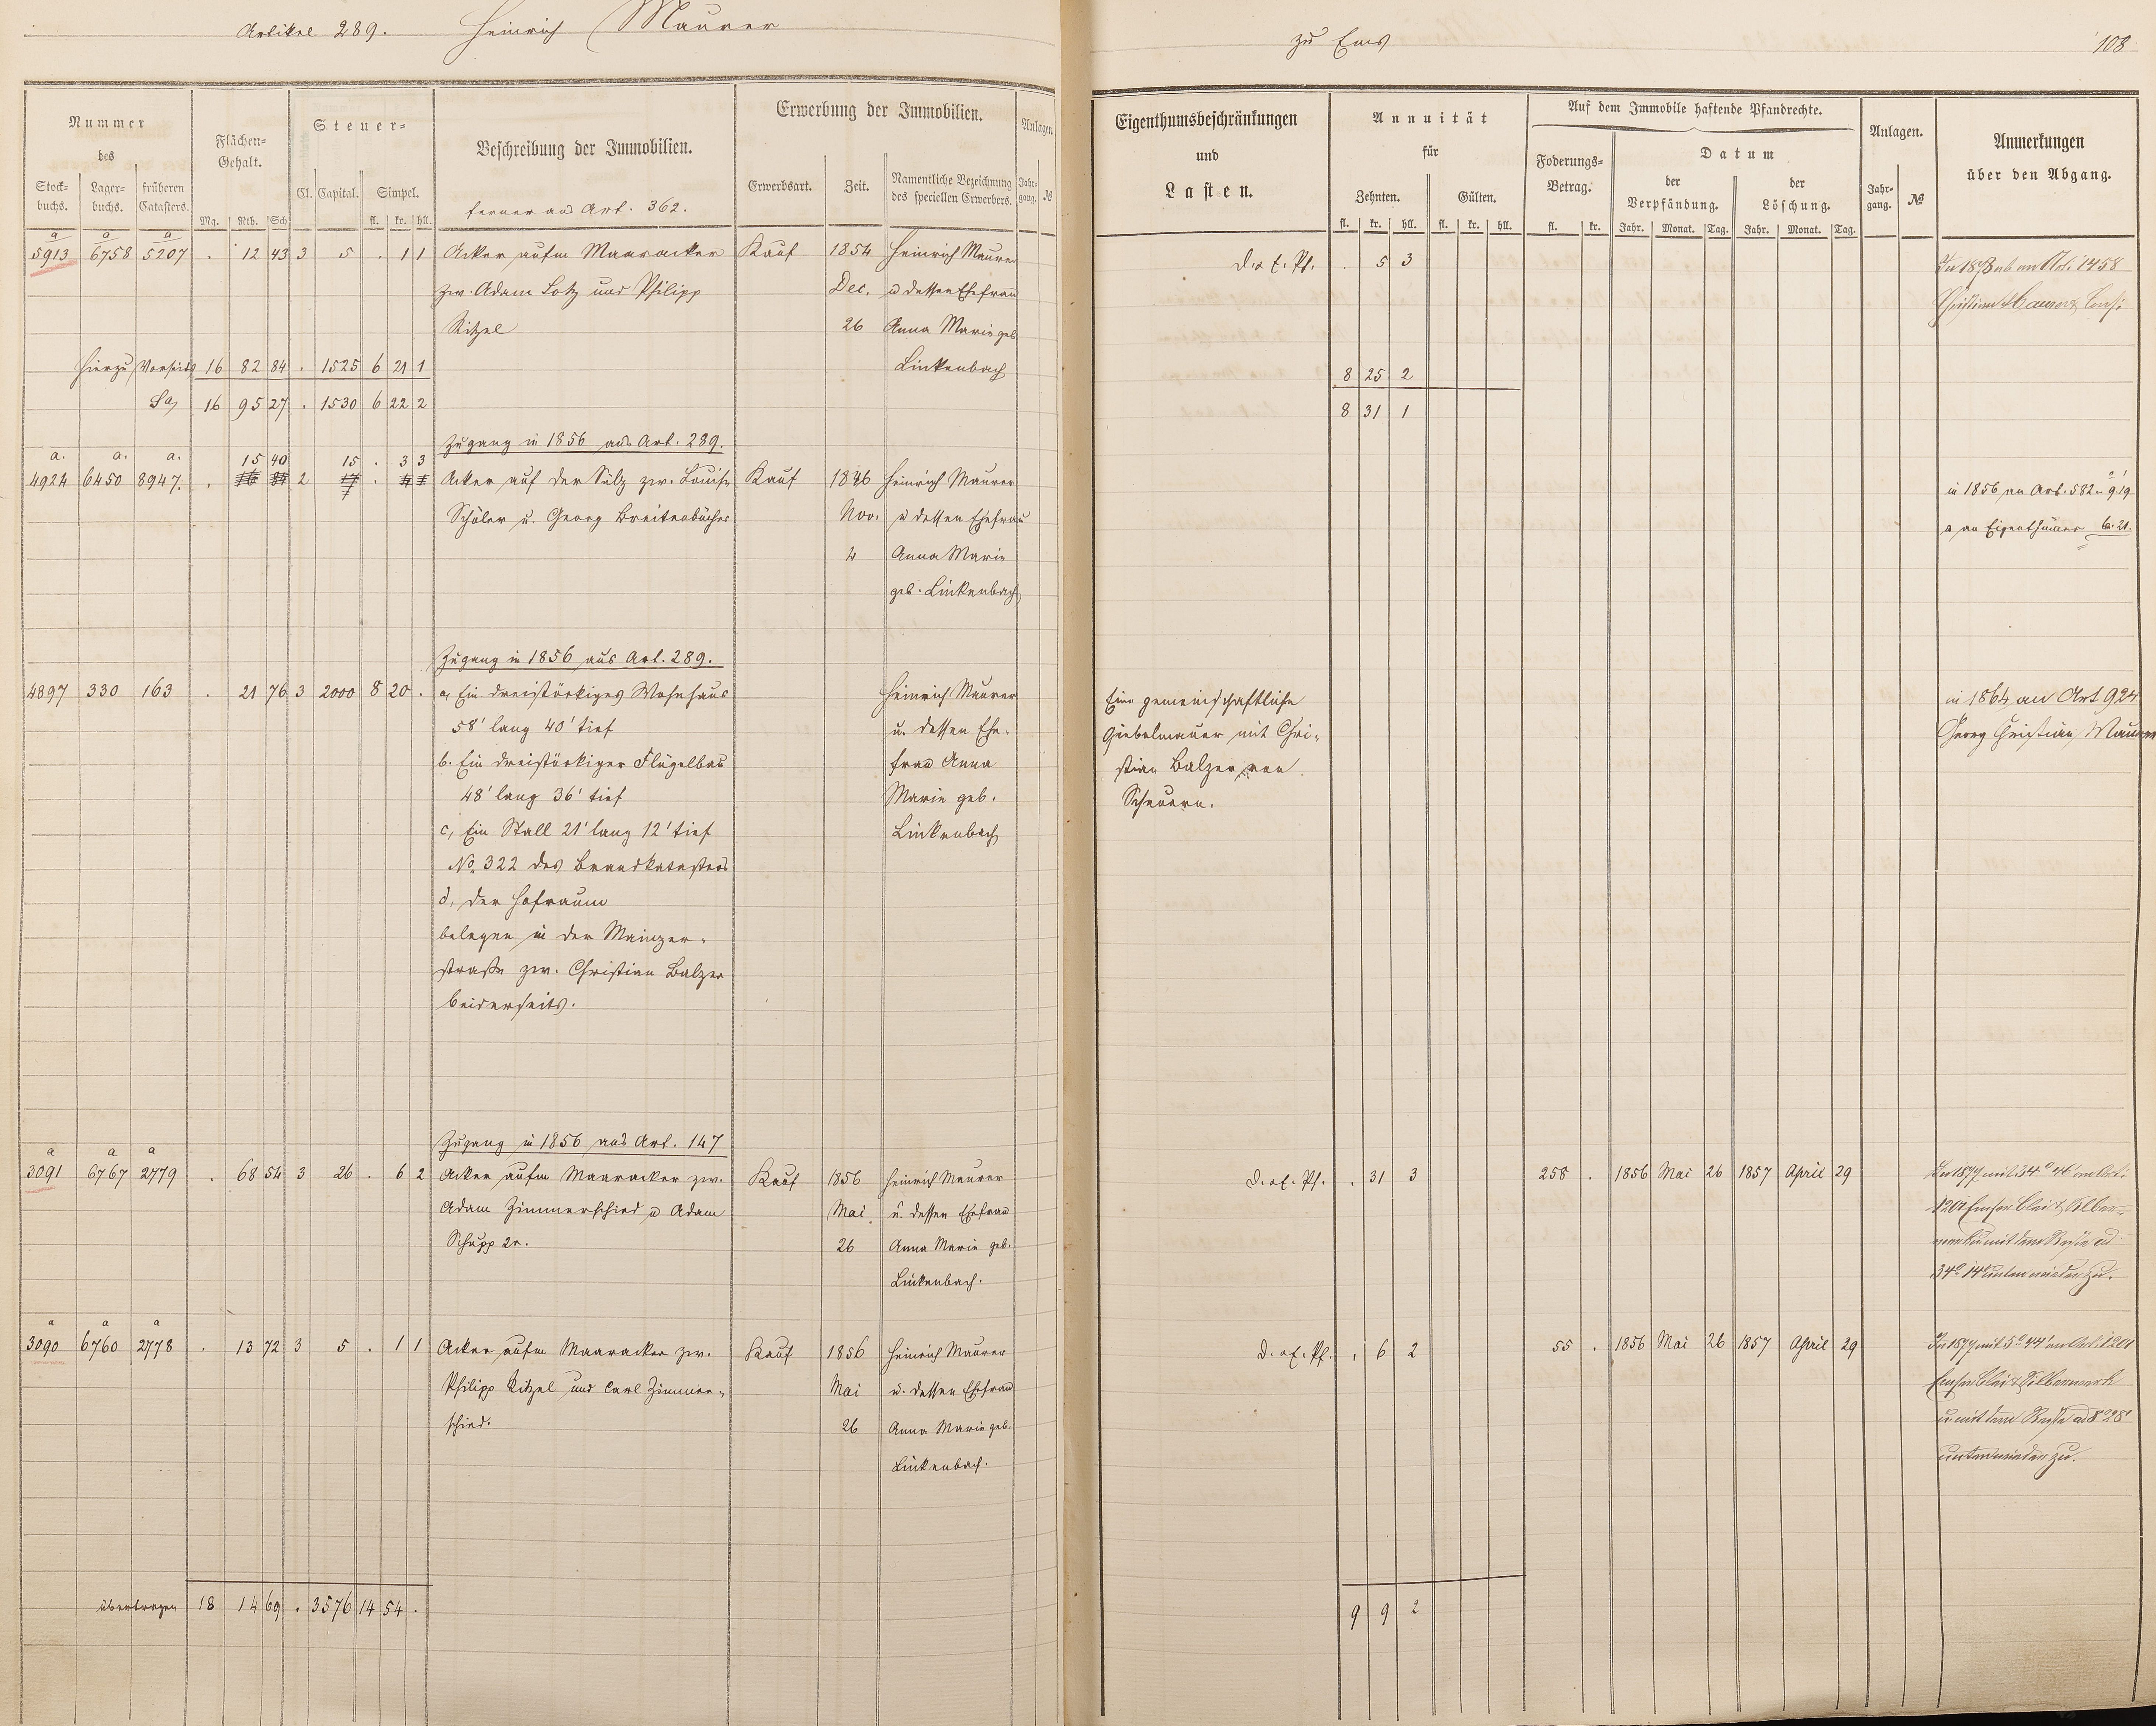 Artikel 289. Heinrich Maurer
zu Ems
108
Nummer
des
Stock-
buchs.
Lager-
buchs.
früheren
Catasters.
Flächen-
Gehalt.
Mg. Rth. Sch
Steuer-
Cl. Capital. Simpel.
fl. kr. hll.
Beschreibung der Immobilien.
ferner aus Art. 362.
Erwerbung der Immobilien.
Erwerbsart. Zeit.
Namentliche Bezeichnung
des speciellen Erwerbers.
Anlagen
Jahr-
gang. №
Eigenthumsbeschränkungen
und
Lasten.
Annuität
für
Zehnten. Gülten.
fl. kr. hll. fl. kr. hll.
Auf dem Immobile haftende Pfandrechte.
Foderungs-
Betrag.
fl. kr.
Datum
der
Verpfändung.
der
Löschung.
Jahr. Monat. Tag. Jahr. Monat. Tag.
Anlagen.
Jahr-
gang. №
Anmerkungen
über den Abgang.
a a a
5913 6758 5207 . 12 43 3 5 . 1 1 Acker aufm Maaracker Kauf 1854 Heinrich Maurer
zw. Adam Lotz und Philipp Dec. u dessen Ehefrau
Ritzel 26 Anna Marie geb
Linkenbach
d. a. E. Pf. . 5 3
In 1878 ab an Art. 1458
Christian Maurer
Hierzu Vorseite 16 82 84 . 1525 6 21 1
8 25 2
Sa 16 95 27 . 1530 6 22 2
8 31 1
Zugang in 1856 aus Art. 289.
a. a. a. 15 40 15 . 3 3
4924 6450 8947. . 2 Acker auf der Sülz zw. Louise Kauf 1846 Heinrich Maurer
Schöler u. Georg Breitenbücher Nov. u dessen Ehefrau
2 Anna Marie
geb. Linkenbach
in 1856 an Art. 582 9.19
a an Eigenthümer 6. 21.
Zugang in 1856 aus Art. 289.
4897 330 163 . 21 76 3 2000 8 20 . a, Ein dreistöckiges Wohnhaus Heinrich Maurer
58' lang 40' tief u. dessen Ehe-
b. Ein dreistöckiger Flügelbau frau Anna
48' lang 36' tief Marie geb.
c, Ein Stall 21' lang 12' tief Linkenbach
No. 322 des Brandkatasters
d, der Hofraum
belegen in der Mainzer-
straße zw. Christian Balzer
beiderseits.
Eine gemeinschaftliche
Giebelmauer mit Chri-
stian Balzer von
Scheuern.
in 1864 an Art 924
Georg Christian Maurer
Zugang in 1856 aus Art. 147
a a a
3091 6767 2779 . 68 54 3 26 . 6 2 Acker aufm Maaracker zw. Kauf 1856 Heinrich Maurer
Adam Zimmerschied u Adam Mai u. dessen Ehefrau
Schupp 2r. 26 Anna Marie geb.
Linkenbach.
d. a. E. Pf. . 31 3 258 . 1856 Mai 26 1857 April 29
In 1877 mit 34° 40' an Art.
1201 Emser Blei & Silber-
werk u mit dem Reste ad
34° 14' unten wieder zu.
a a a
3090 6760 2778 . 13 72 3 5 . 1 1 Acker aufm Maaracker zw. Kauf 1856 Heinrich Maurer
Philipp Ritzel und Carl Zimmer- Mai u. dessen Ehefrau
schied. 26 Anna Marie geb.
Linkenbach.
d. a. E. Pf. . 6 2 55 . 1856 Mai 26 1857 April 29
In 1877 mit 5° 44' an Art. 1201
Emser Blei & Silberwerk
u. mit dem Reste ad 8° 28'
unten wieder zu.
übertragen 18 14 69 . 3576 14 54 .
9 9 2